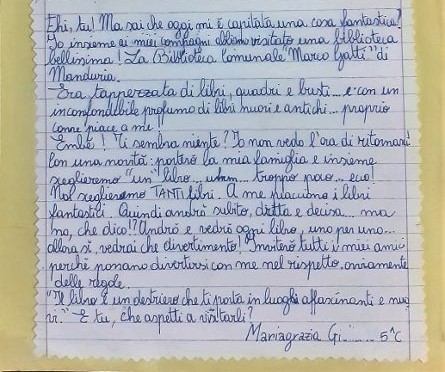 Ehi, tu! Ma sai che oggi mi è capitata una cosa fantastica!
Io insieme ai miei compagni abbiamo visitato una biblioteca
bellissima! La Biblioteca Comunale "Marco Gatti" di
Manduria.
Era tappezzata di libri, quadri e busti... e con un
inconfondibile profumo di libri nuovi e antichi... proprio
come piace a me!
Embè! Ti sembra niente? Io non vedo l'ora di ritornarci
con una novità: porterò la mia famiglia e insieme
sceglieremo "un" libro... uhmm... troppo poco... ecco!
Noi sceglieremo TANTI libri. A me piacciono i libri
fantastici. Quindi andrò subito, dritta e decisa... ma
ma, che dico!? Andrò e vedrò ogni libro, uno per uno...
allora sì, vedrai che divertimento! Inviterò tutti i miei amici
perché possano divertirsi con me nel rispetto, ovviamente
delle regole.
"Il libro è un destriero che ti porta in luoghi affascinanti e nuo
vi." E tu, che aspetti a visitarli?
Mariagrazia Gi........ 5^C